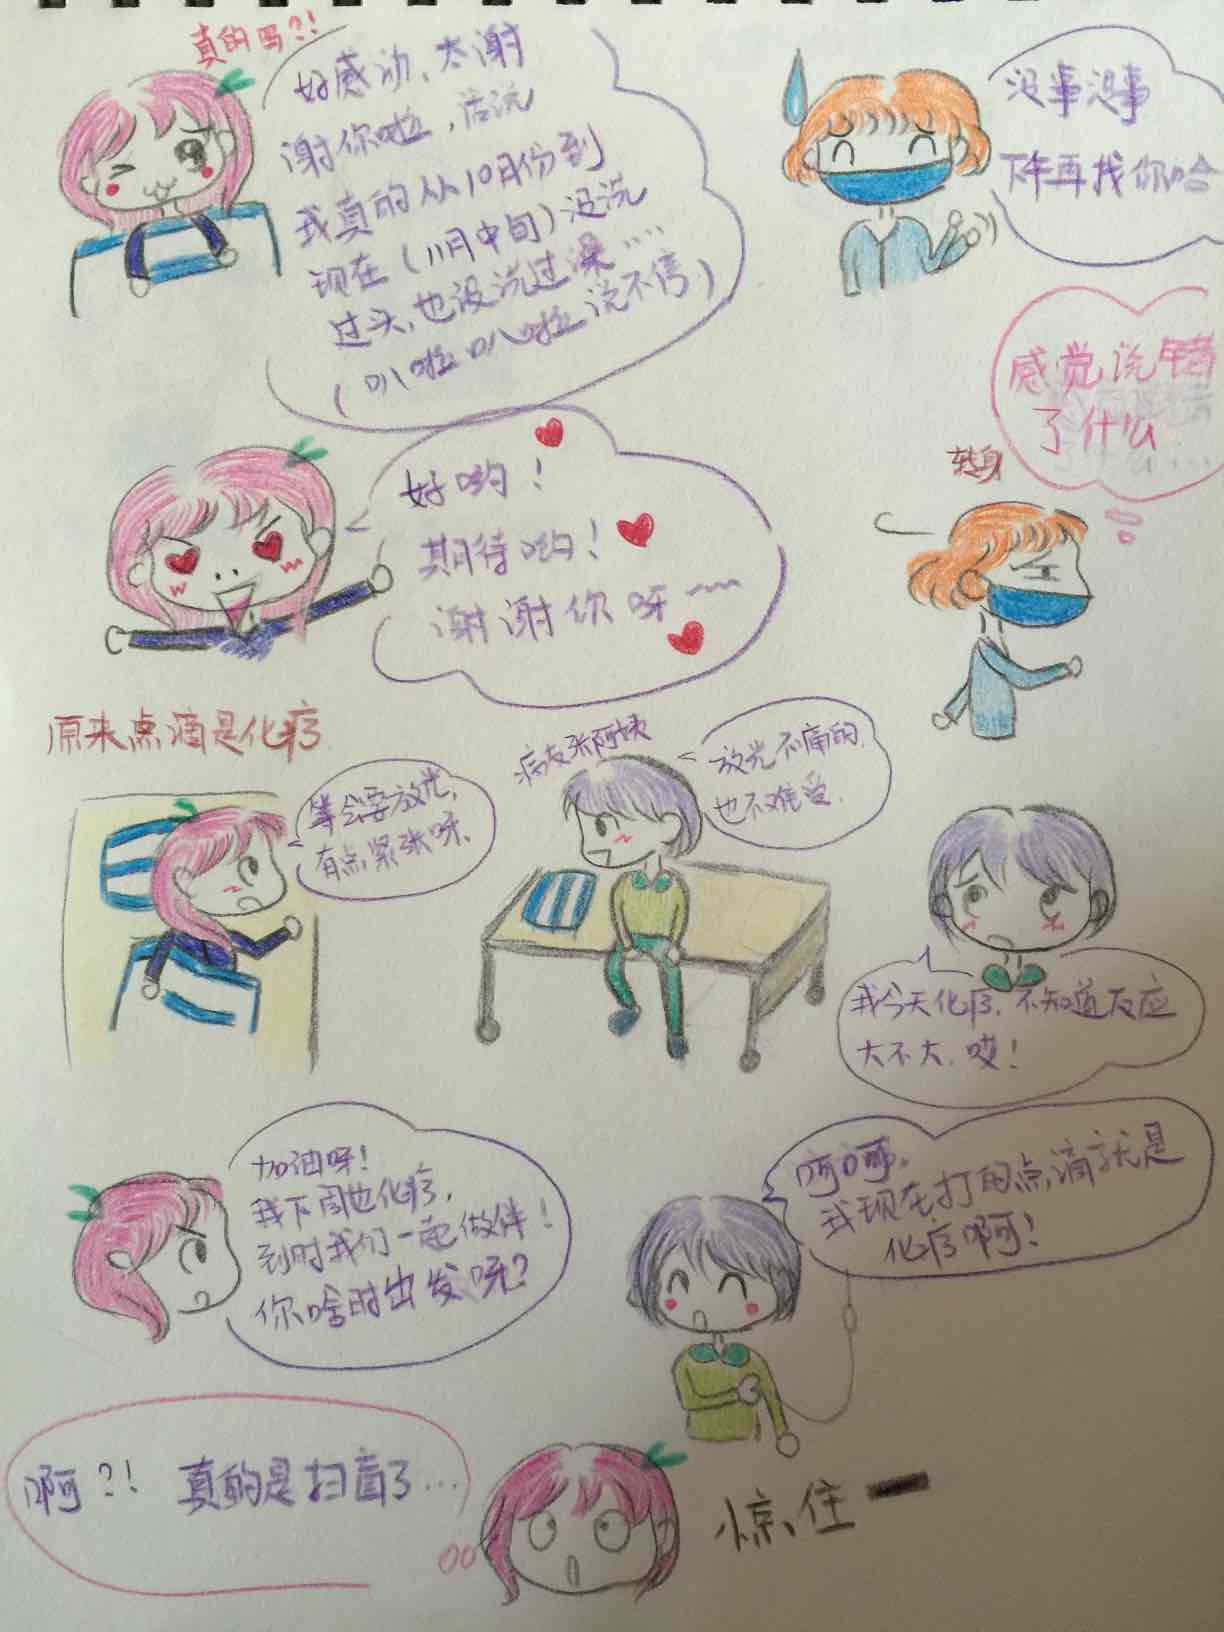 真的吗?!
好感动、太谢
谢你啦，话说
我真的从10月份到
现在（11月中旬）没洗
过头，也没洗过澡....
（叭啦叭啦说不停）
没事没事
下午再找你哈
感觉说错
了什么
转身
好哟！
期待哟！
谢谢你呀~~
原来点滴是化疗
等会要放光，
有点紧张呀、
病友张阿姨
放光不痛的，
也不难受.
我今天化疗，不知道反应
大不大，哎！
加油呀！
我下周也化疗，
到时我们一起做伴！
你啥时出发呀？
呵呵，
我现在打的点滴就是
化疗啊！
啊?! 真的是扫盲了...
惊住